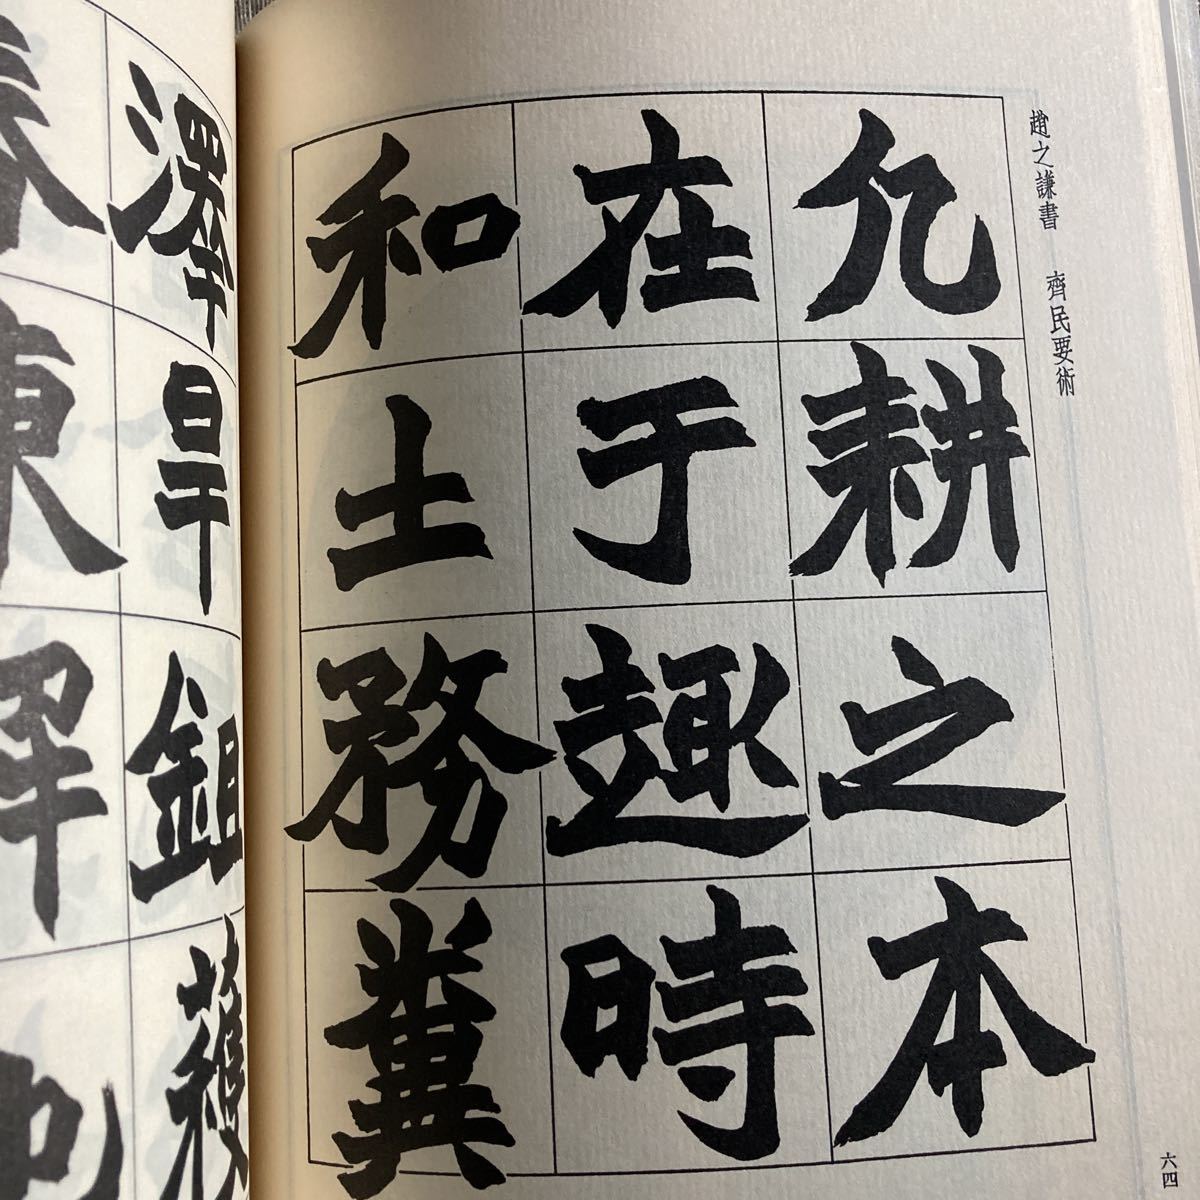 趙之謙書 齊民要術
凡耕之本
在于趣時
和土務糞
六四
澤旱鉏穫